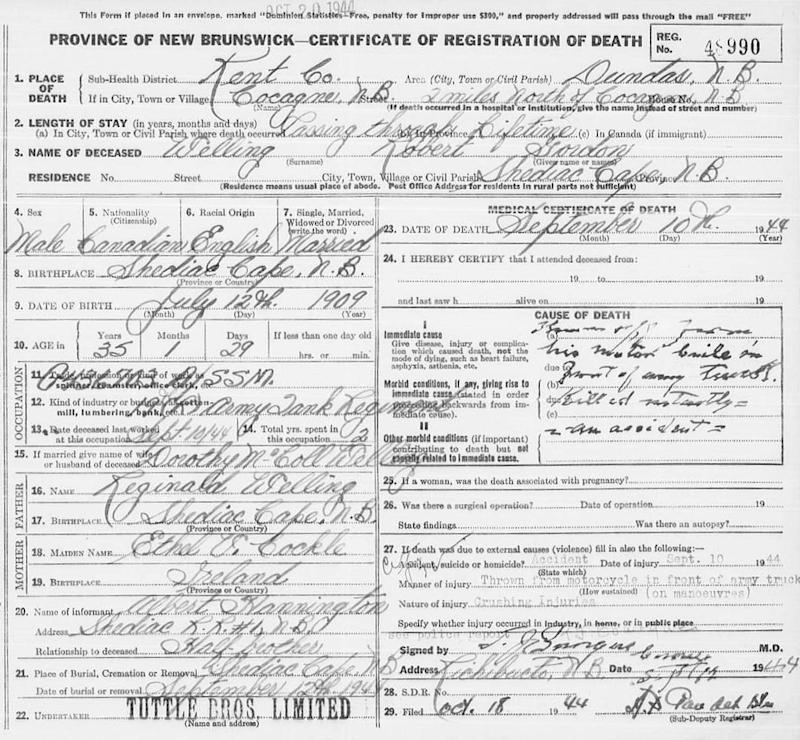 OCT 20 1944
This Form if placed in an envelope, marked "Dominion Statistics—Free, penalty for improper use $300," and properly addressed will pass through the mail "FREE"
PROVINCE OF NEW BRUNSWICK—CERTIFICATE OF REGISTRATION OF DEATH
REG. No. 48990
1. PLACE OF DEATH
Sub-Health District Kent Co. Area (City, Town or Civil Parish) Dundas, N.B.
If in City, Town or Village Cocagne, N.B. Street 2 miles North of Cocagne House No. N.B
(Name) (If death occurred in a hospital or institution, give the name instead of street and number)
2. LENGTH OF STAY (in years, months and days)
(a) In City, Town or Civil Parish where death occurred Passing through (b) In Province Lifetime (c) In Canada (if immigrant)
3. NAME OF DECEASED Welling Robert Gordon
(Surname) (Given name or names)
RESIDENCE No. Street City, Town, Village or Civil Parish Shediac Cape, N.B. Province
(Residence means usual place of abode. Post Office Address for residents in rural parts not sufficient)
4. Sex 5. Nationality (Citizenship) 6. Racial Origin 7. Single, Married, Widowed or Divorced (write the word)
Male Canadian English Married
8. BIRTHPLACE Shediac Cape, N.B.
(Province or Country)
9. DATE OF BIRTH July 12th 1909
(Month) (Day) (Year)
10. AGE in Years Months Days If less than one day old
35 1 29 hrs. or min.
OCCUPATION
11. Trade, profession or kind of work as spinner, teamster, office clerk, SSM.
12. Kind of industry or business as cotton mill, lumbering, bank, etc. Army Tank Regiment
13. Date deceased last worked at this occupation Sept 10/44 14. Total yrs. spent in this occupation 2
15. If married give name of wife or husband of deceased Dorothy McColl Welling
FATHER
16. NAME Reginald Welling
17. BIRTHPLACE Shediac Cape, N.B.
(Province or Country)
MOTHER
18. MAIDEN NAME Ethel F. Cockle
19. BIRTHPLACE Ireland
(Province or Country)
20. Name of informant Albert Hannington
Address Shediac R.R.#1, N.B.
Relationship to deceased Half brother
21. Place of Burial, Cremation or Removal Shediac Cape N B
Date of burial or removal September 12th 194
22. UNDERTAKER TUTTLE BROS. LIMITED
(Name and address)
MEDICAL CERTIFICATE OF DEATH
23. DATE OF DEATH September 10th. 1944
(Month) (Day) (Year)
24. I HEREBY CERTIFY that I attended deceased from:
19 to 19
and last saw h alive on 19
CAUSE OF DEATH
I
Immediate cause
Give disease, injury or complication which caused death, not the mode of dying, such as heart failure, asphyxia, asthenia, etc.
Morbid conditions, if any, giving rise to immediate cause (stated in order proceeding backwards from immediate cause).
II
Other morbid conditions (if important) contributing to death but not causally related to immediate cause.
(a) Thrown off from
his motor bike in
due to
front of army trucks.
(b)
due to
Killed instantly =
(c)
= an accident =
25. If a woman, was the death associated with pregnancy?
26. Was there a surgical operation? Date of operation 19
State findings Was there an autopsy?
27. If death was due to external causes (violence) fill in also the following:
Accident, suicide or homicide? Accident Date of injury Sept. 10 1944
(State which)
Manner of injury Thrown from motorcycle in front of army truck
(How sustained) (on manoeuvres)
Nature of injury Crushing Injuries
Specify whether injury occurred in industry, in home, or in public place
see police report
Signed by M.D.
Address Richibucto, N B Date 1944
28. S.D.R. No.
29. Filed Oct. 18 1944
(Sub-Deputy Registrar)